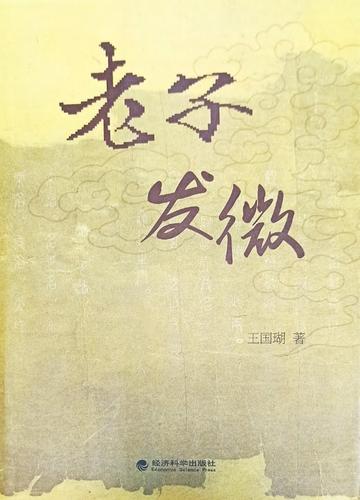 老子
发微
王国瑚 著
经济科学出版社
Economic Science Press